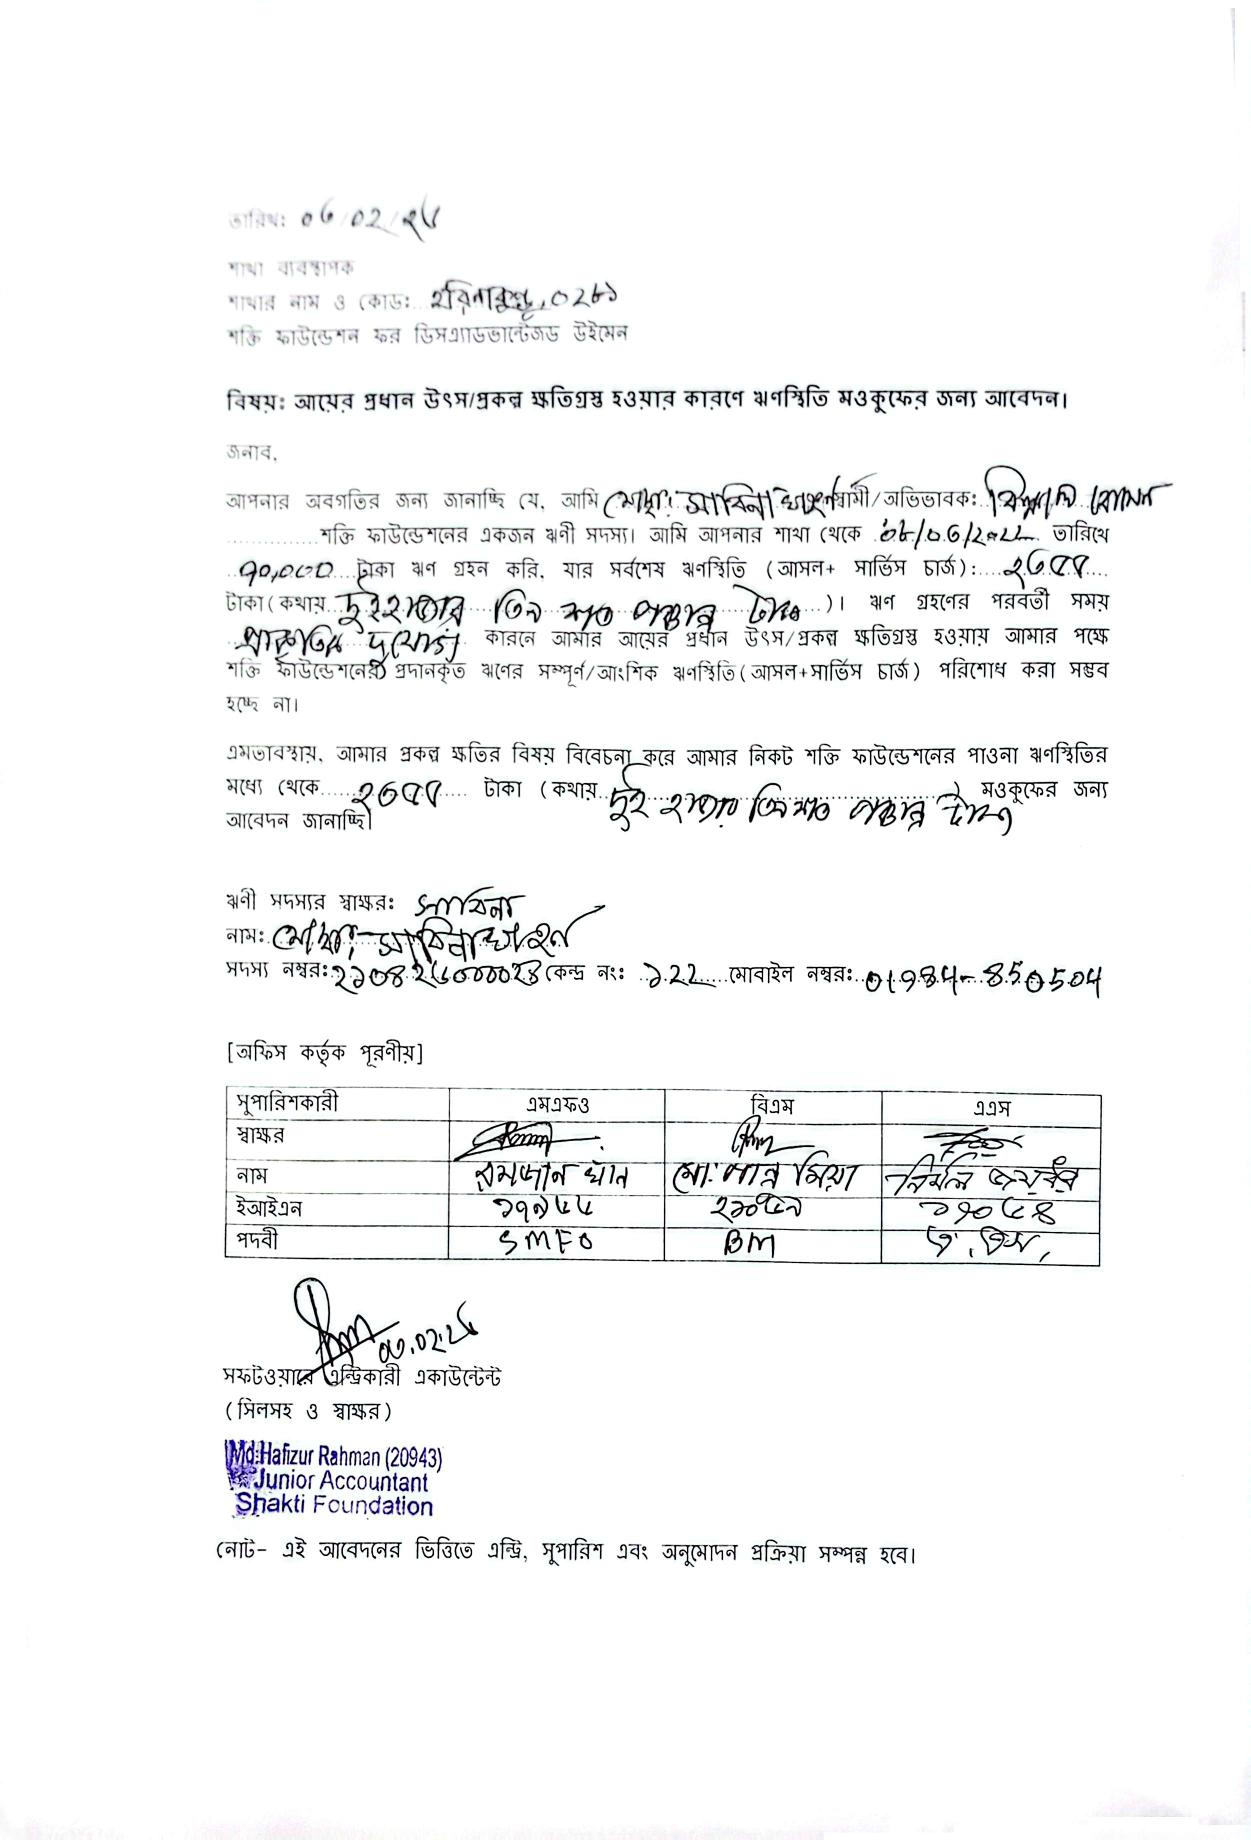 তারিখ: ০৬/০২/২৫
শাখা ব্যবস্থাপক
শাখার নাম ও কোড: হরিনাকুন্ডু, ০২৮১
শক্তি ফাউন্ডেশন ফর ডিসএ্যাডভান্টেজড উইমেন
বিষয়: আয়ের প্রধান উৎস/প্রকল্প ক্ষতিগ্রস্ত হওয়ার কারণে ঋণস্থিতি মওকুফের জন্য আবেদন।
জনাব,
আপনার অবগতির জন্য জানাচ্ছি যে, আমি মোছা: সাবিনা খাতুন স্বামী/অভিভাবক:
শক্তি ফাউন্ডেশনের একজন ঋণী সদস্য। আমি আপনার শাখা থেকে তারিখে
৭০,০০০ টাকা ঋণ গ্রহন করি, যার সর্বশেষ ঋণস্থিতি (আসল+ সার্ভিস চার্জ): ২৩৫৫
টাকা(কথায় দুই হাজার তিন শত পঞ্চান্ন টাকা )। ঋণ গ্রহণের পরবর্তী সময়
প্রাকৃতিক দুর্যোগ কারনে আমার আয়ের প্রধান উৎস/প্রকল্প ক্ষতিগ্রস্ত হওয়ায় আমার পক্ষে
শক্তি ফাউন্ডেশনের প্রদানকৃত ঋণের সম্পূর্ণ/আংশিক ঋণস্থিতি(আসল+সার্ভিস চার্জ) পরিশোধ করা সম্ভব
হচ্ছে না।
এমতাবস্থায়, আমার প্রকল্প ক্ষতির বিষয় বিবেচনা করে আমার নিকট শক্তি ফাউন্ডেশনের পাওনা ঋণস্থিতির
মধ্যে থেকে ২৩৫৫ টাকা (কথায় দুই হাজার তিন শত পঞ্চান্ন টাকা) মওকুফের জন্য
আবেদন জানাচ্ছি।
ঋণী সদস্যর স্বাক্ষর: সাবিনা
নাম: মোছা: সাবিনা খাতুন
সদস্য নম্বর: কেন্দ্র নং: ১২২ মোবাইল নম্বর: 01984-850504
[অফিস কর্তৃক পূরণীয়]
সুপারিশকারী এমএফও বিএম এএস
স্বাক্ষর
নাম রমজান খান মো: পান্নু মিয়া নির্মল
ইআইএন ১৭৯৫৫
পদবী SMFO BM এ.এস,
০৬.০২.২৫
সফটওয়ারে এন্ট্রিকারী একাউন্টেন্ট
(সিলসহ ও স্বাক্ষর)
Md.Hafizur Rahman (20943)
Junior Accountant
Shakti Foundation
নোট- এই আবেদনের ভিত্তিতে এন্ট্রি, সুপারিশ এবং অনুমোদন প্রক্রিয়া সম্পন্ন হবে।